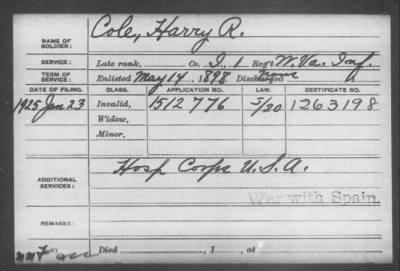 NAME OF SOLDIER: Cole, Harry R.
SERVICE: Late rank, Co. I, 1 Reg't W. Va. Inf.
TERM OF SERVICE: Enlisted May 14, 1898 Discharged
DATE OF FILING. CLASS. APPLICATION NO. LAW. CERTIFICATE NO.
1925 Jan 23 Invalid, 1512776 5/20 1263198
Widow,
Minor,
ADDITIONAL SERVICES: Hosp Corps U.S.A.
War with Spain.
REMARKS:
Died , 1 , at